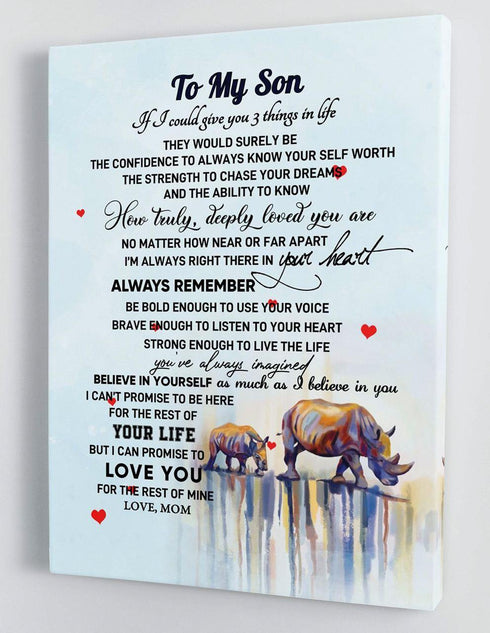 To My Son
If I could give you 3 things in life
THEY WOULD SURELY BE
THE CONFIDENCE TO ALWAYS KNOW YOUR SELF WORTH
THE STRENGTH TO CHASE YOUR DREAMS
AND THE ABILITY TO KNOW
How truly, deeply loved you are
NO MATTER HOW NEAR OR FAR APART
I'M ALWAYS RIGHT THERE IN your heart
ALWAYS REMEMBER
BE BOLD ENOUGH TO USE YOUR VOICE
BRAVE ENOUGH TO LISTEN TO YOUR HEART
STRONG ENOUGH TO LIVE THE LIFE
you've always imagined
BELIEVE IN YOURSELF as much as I believe in you
I CAN'T PROMISE TO BE HERE
FOR THE REST OF
YOUR LIFE
BUT I CAN PROMISE TO
LOVE YOU
FOR THE REST OF MINE
LOVE, MOM